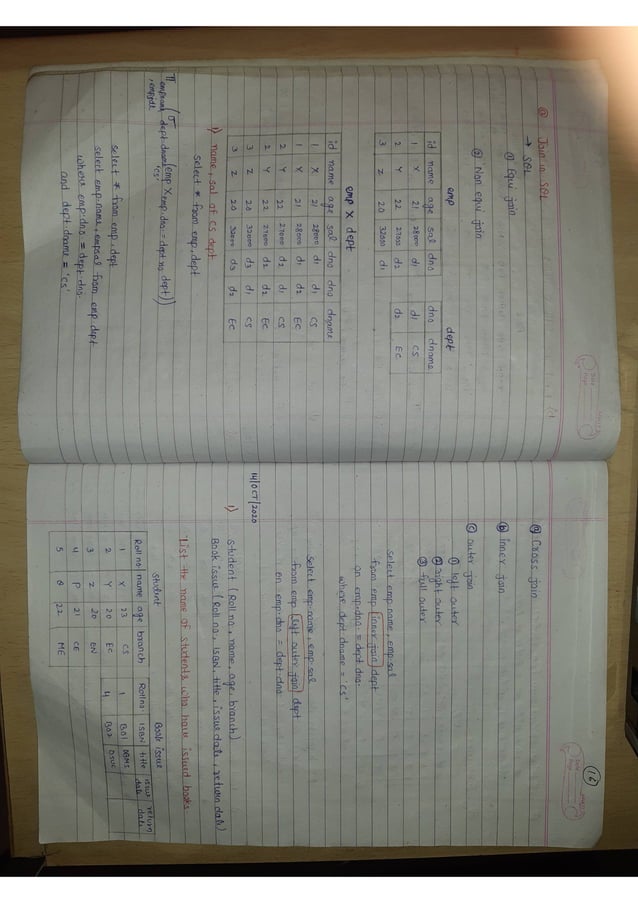 @ Join in SQL
→ SQL
① Equi join
② Non equi join
emp
id name age sal dno
1 X 21 28000 d1
2 Y 22 27000 d2
3 Z 20 32000 d1
dept
dno dname
d1 CS
d2 EC
emp X dept
id name age sal dno dno dname
1 X 21 28000 d1 d1 CS
1 X 21 28000 d1 d2 EC
2 Y 22 27000 d2 d1 CS
2 Y 22 27000 d2 d2 EC
3 Z 20 32000 d3 d1 CS
3 Z 20 32000 d3 d2 EC
1) name, sal of CS dept
select * from emp, dept
select * from emp, dept
select emp.name, emp.sal from emp, dept
where emp.dno = dept.dno
and dept.dname = 'CS'
16
ⓐ Cross join
ⓑ Inner join
ⓒ outer join
① left outer
② right outer
③ full outer
select emp.name, emp.sal
from emp inner join dept
on emp.dno = dept.dno
where dept.dname = 'CS'
select emp.name, emp.sal
from emp left outer join dept
on emp.dno = dept.dno
14/OCT/2020
1) Student (Roll no., name, age, branch)
Book issue (Roll no., ISBN, title, issue date, return date)
"List the name of students who have issued books.
Student
Roll no name age branch
1 X 23 CS
2 Y 20 EC
3 Z 20 EN
4 P 21 CE
5 Q 22 ME
Book issue
Roll no. ISBN title issue date return date
1 B01 DBMS
4 B02